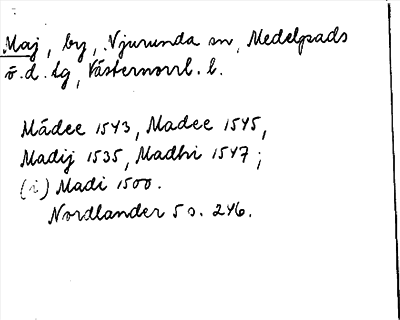 Maj, by, Njurunda sn, Medelpads
ö.d. tg, Västernorrl. l.
Mádee 1543, Madee 1545,
Madij 1535, Madhi 1547;
(i) Madi 1500.
Nordlander 5 s. 246.